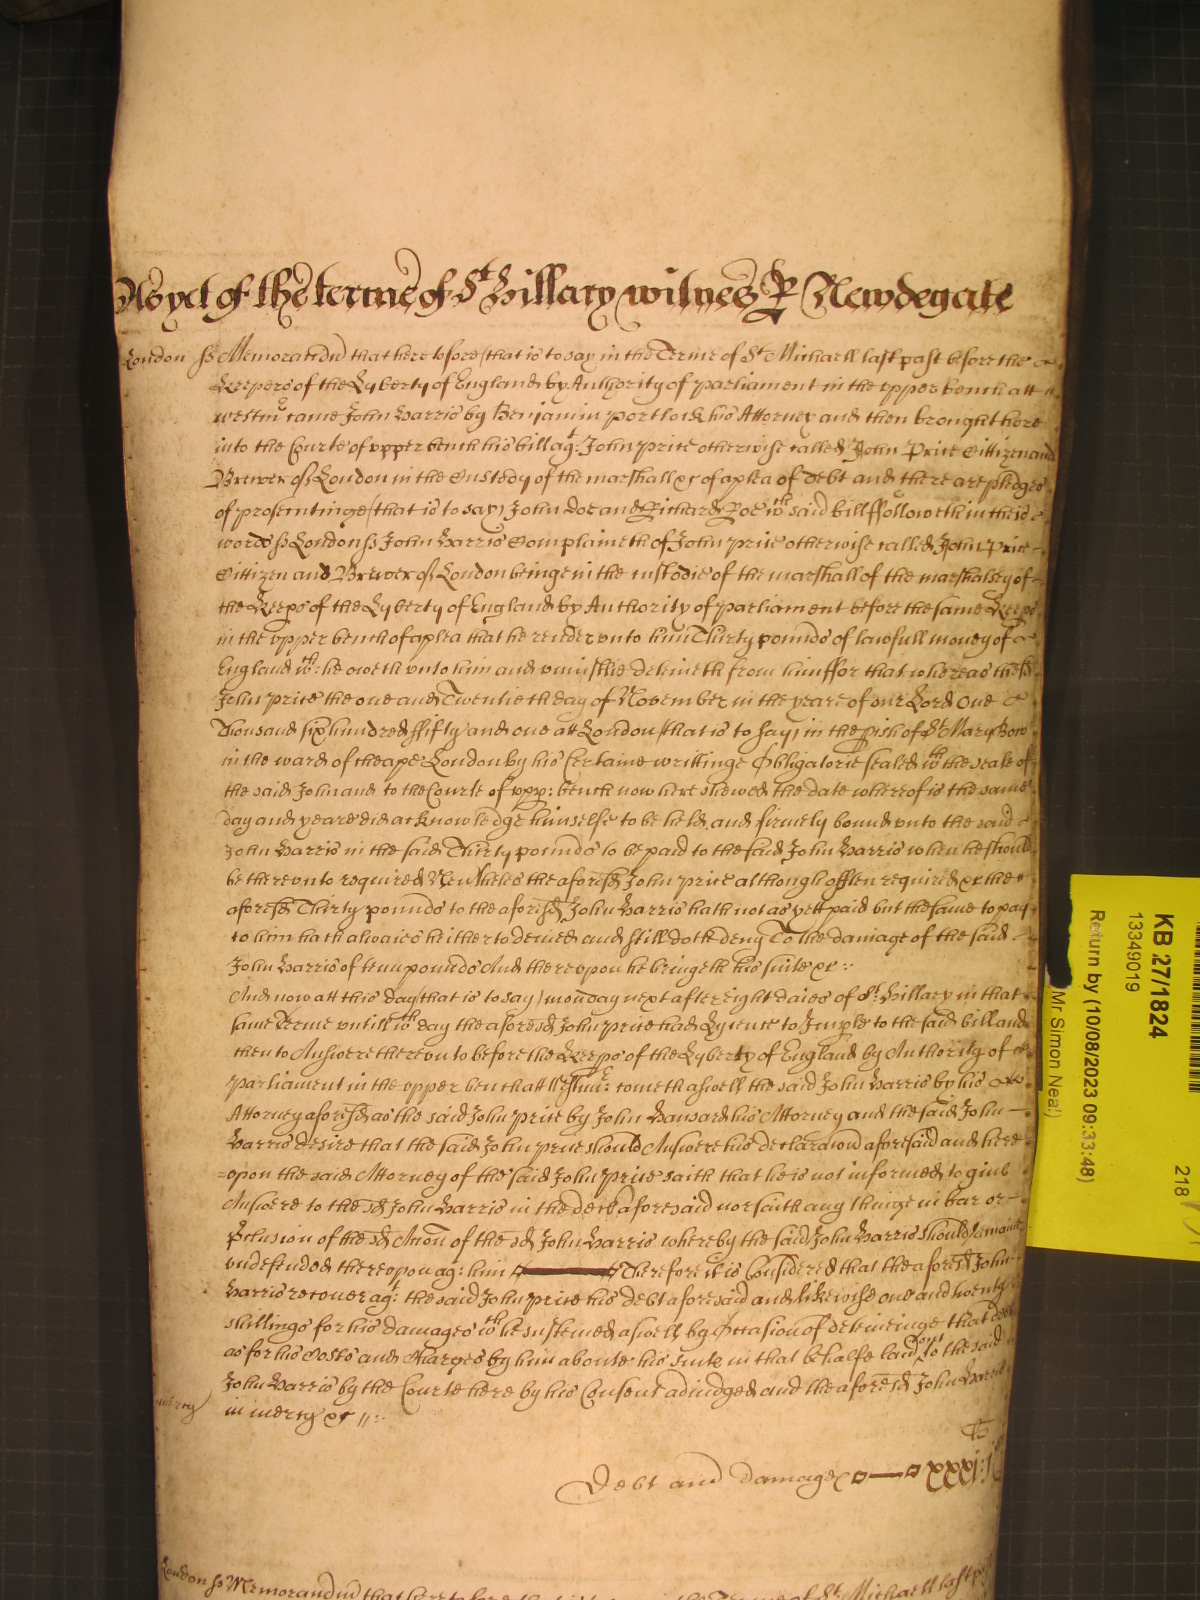 As yet of the terme of St Hillary witnes R Newdegate
London ss Memorandud that heretofore (that is to say in the Terme of St Michaell last past before the
Keepers of the Lyberty of England by Authority of parliament in the vpper bench att
westmr came John Harris by Beniamin portlock his Attorney and then brought here
into the Courte of vpper bench his bill agt: John price otherwise called John Price Cittizen and
Brewer of London in the Custody of the marshall &c of a plea of debt and there are pledges
of prosecutinge (that is to say) John doe and Richard Roe wch said bill ffolloweth in theis
words ss London ss John Harris Complaineth of John price otherwise called John Price
Cittizen and Brewer of London beinge in the custodie of the marshall of the marshalsey of
the Keeps of the Lyberty of England by Authority of parliament before the same Keeps
in the vpper bench of a plea that he render vnto him Thirty pounds of lawfull money of
England wch: he oweth vnto him and vniustlie deteineth from him ffor that whereas the sd
John price the one and Twentieth day of November in the yeare of our Lord One
Thousand six hundred ffifty and one att London (that is to say) in the pish of St Mary Bow
in the ward of cheape London by his Certaine writtinge Obligatorie sealed wth the seale of
the said John and to the Courte of vpp: bench now here shewed the date whereof is the same
day and yeare did acknowledge himselfe to be held and firmely bound vnto the said
John Harris in the said Thirty pounds to be paid to the said John Harris when he should
be therevnto required Nevtheles the aforesd John price although often required &c the
aforesd Thirty pounds to the aforesd John Harris hath not as yett paid but the same to pay
to him hath alwaies hitherto denied and still doth deny To the damage of the said
John Harris of tenn pounds And therevpon he bringeth his suite &c
And now att this day (that is to say) monday next after eight daies of St Hillary in that
same Terme vntill wch day the aforesd John price had Lycence to Imple to the said bill and
then to Answere therevnto before the Keeps of the Lyberty of England by Authority of
parliament in the vpper bench att Westmr: cometh aswell the said John Harris by his
Attorney aforesd as the said John price by John Hansard his Attorney and the said John
Harris desire that the said John price should Answere his declaracoud aforesaid and here
=vpon the said Attorney of the said John price saith that he is not informed to give
Answere to the sd John Harris in the debt aforesaid nor saith any thinge in bar or
pclusion of the sd Accon of the sd John Harris whereby the said John Harris should remaine
vndefended therevpon agt: him Therefore it is Considered that the aforesd John
Harris recover agt: the said John price his debt aforesaid and likewise one and twenty
shillings for his damages wch he susteined aswell by Occasion of deteininge that debt
as for his Costs and Charges by him aboute his suite in that behalfe laid out to the said
John Harris by the Courte here by his Consent adiudged and the aforesd John Harris
in mercy &c
mercy
Debt and damages xxxj:
London ss Memorandud that heretofore the Terme of St Michaell last
KB 27/1824
13349019
Return by (10/08/2023 09:33:48)
Mr Simon Neal)
218